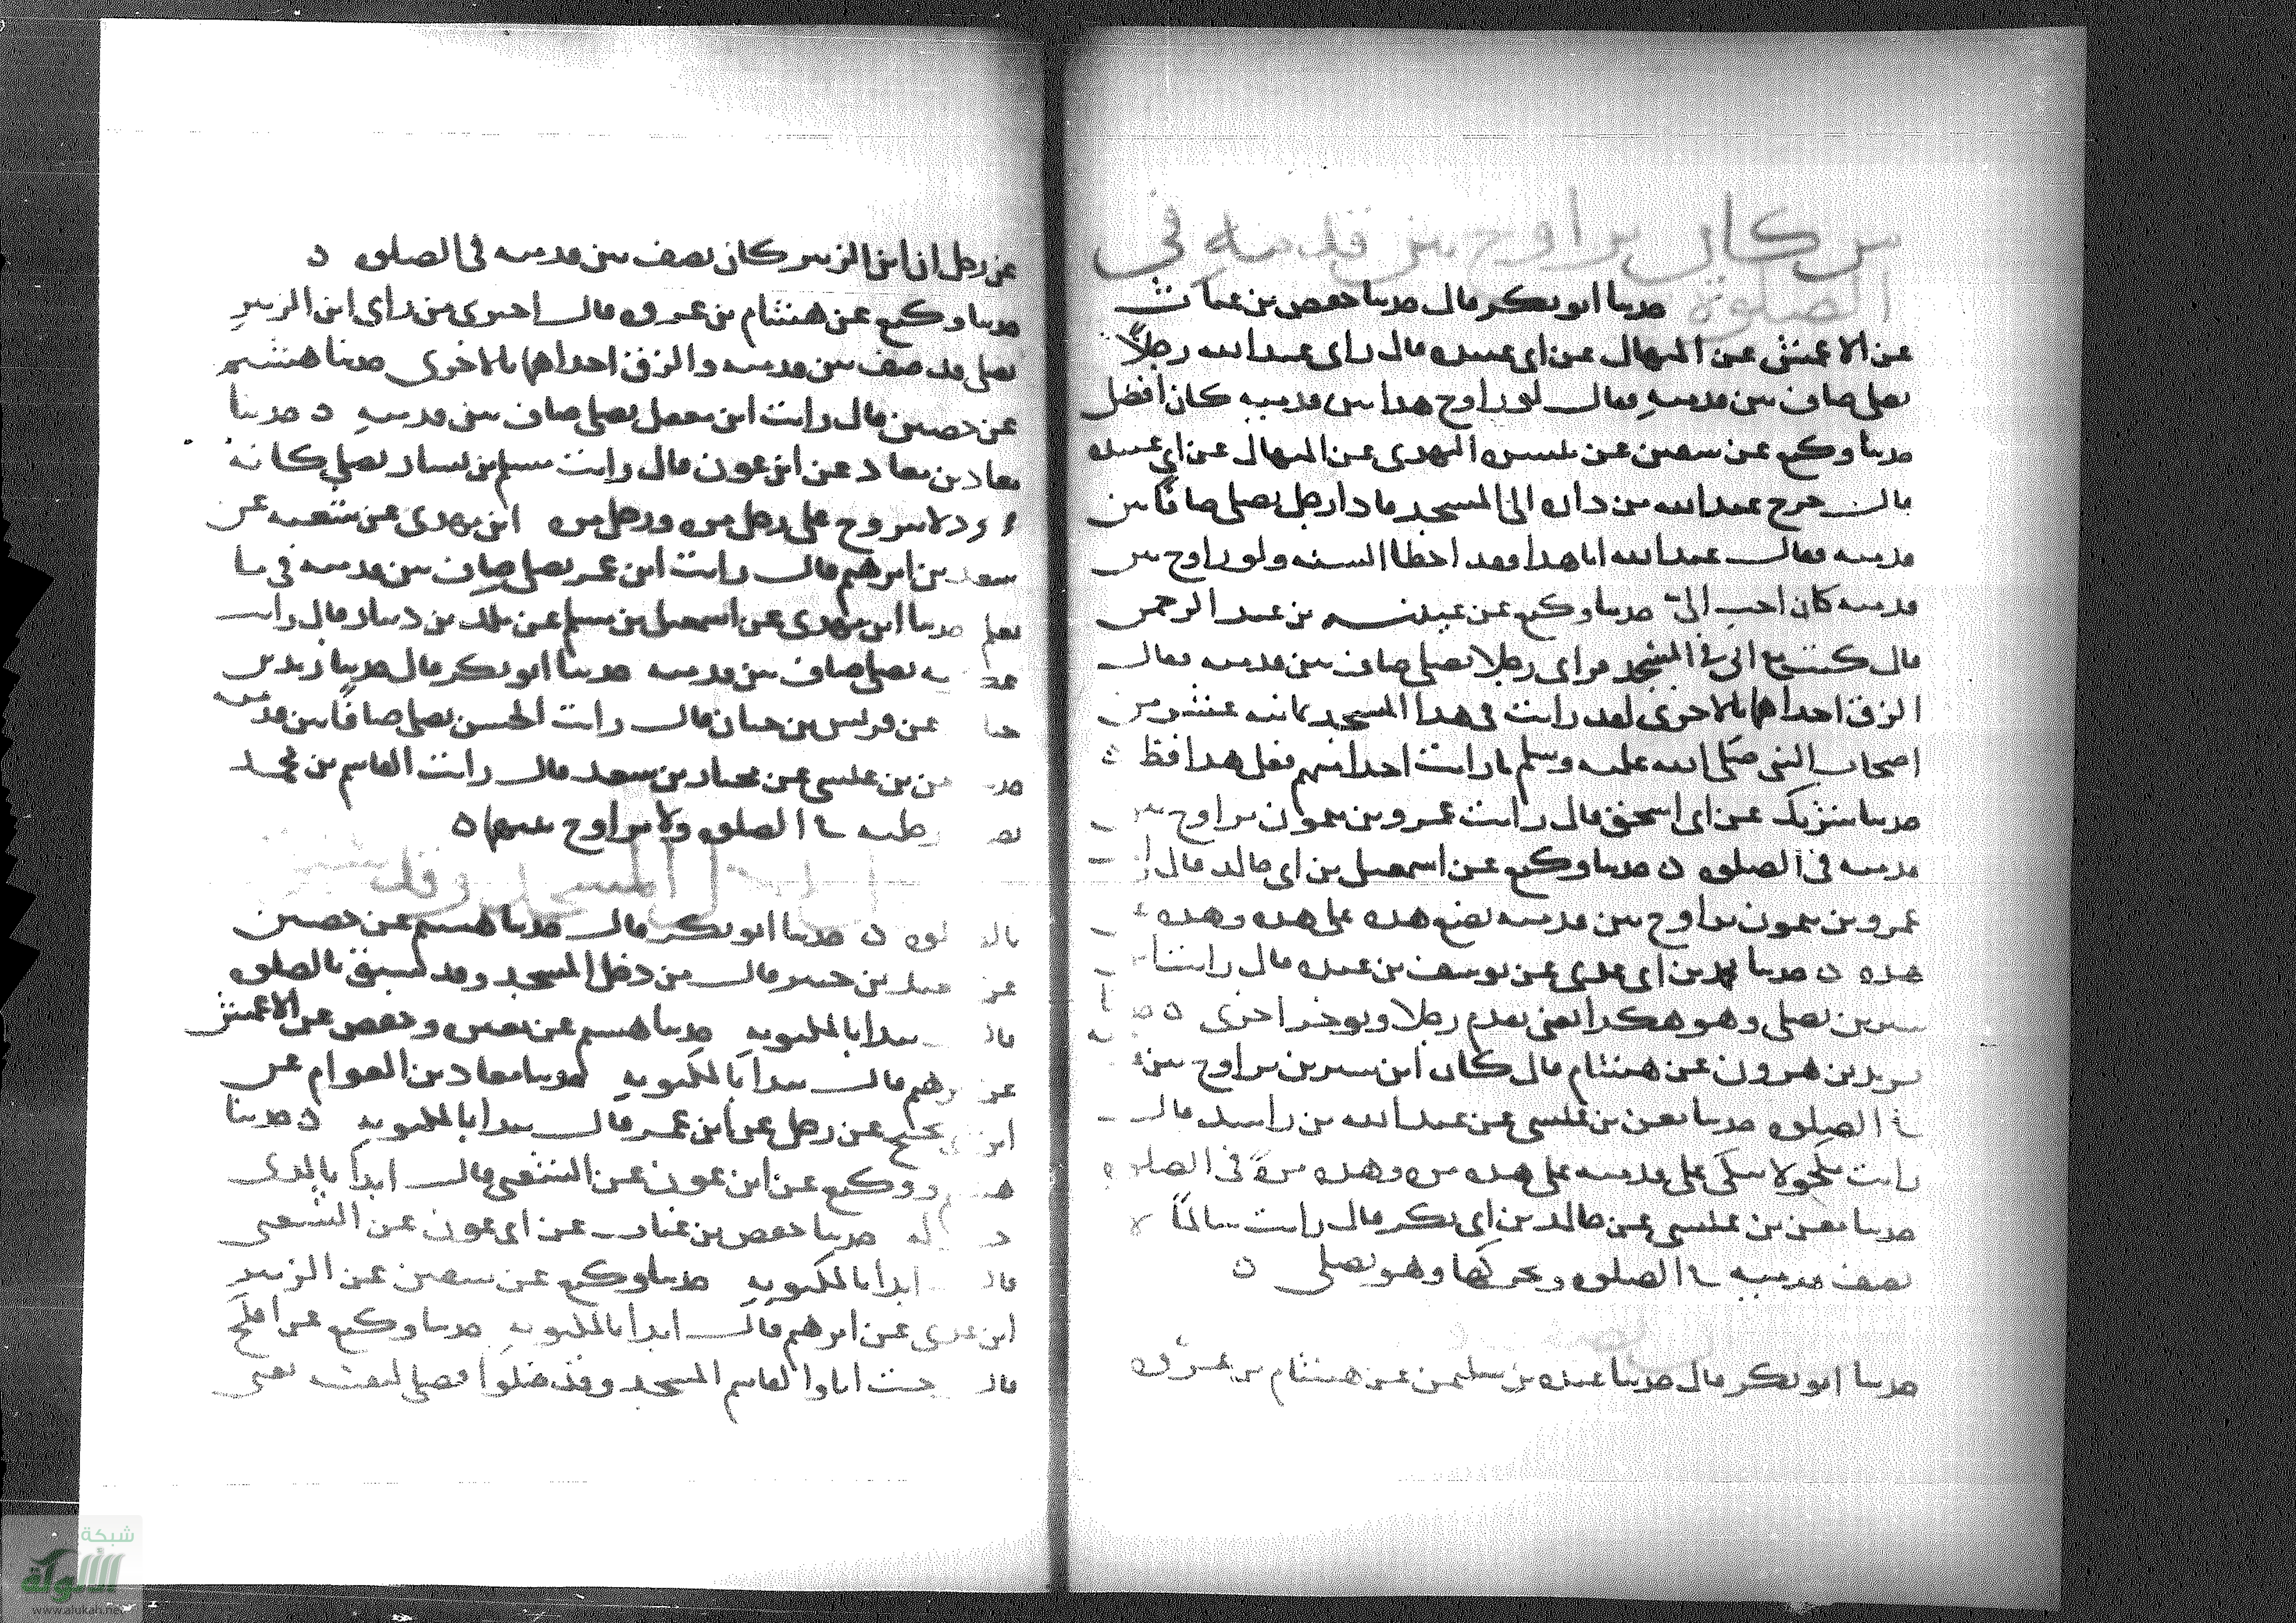 من كان يراوح بين قدميه في
الصلوة حدثنا ابو بكر قال حدثنا حفص بن غياث
عن الاعمش عن المنهال عن ابي عبيده قال راى عبد الله رجلاً
يصلي صاف بين قدميه فقال لو راوح هذا بين قدميه كان افضل
حدثنا وكيع عن سفين عن ميسره النهدي عن المنهال عن ابي عبيده
قال خرج عبد الله من داره الى المسجد فاذا رجل يصلي صافًا بين
قدميه فقال عبد الله اما هذا فقد اخطا السنه ولو راوح بين
قدميه كان احب الي حدثنا وكيع عن عيينه بن عبد الرحمن
قال كنت مع ابي في المسجد فراى رجلا يصلي صاف بين قدميه فقال
الزق احداهما بالاخرى لقد رايت في هذا المسجد ثمانيه عشر من
اصحاب النبي صلى الله عليه وسلم ما رايت احدا منهم فعل هذا قط
حدثنا شريك عن ابي اسحق قال رايت عمرو بن ميمون يراوح بين
قدميه في الصلوه حدثنا وكيع عن اسمعيل بن ابي خالد قال
عمرو بن ميمون يراوح بين قدميه يضع هذه على هذه وهذه
هذه حدثنا محمد بن ابي عدي عن يوسف بن عبده قال رايت
سيرين يصلي وهو هكذا يعني يقدم رجلا ويوخر اخرى
يزيد بن هرون عن هشام قال كان ابن سيرين يراوح بين
في الصلوه حدثنا معن بن عيسى عن عبد الله بن راشد قال
رايت مكحولا يتكى على قدميه على هذه مره وهذه مرةً في الصلوه
حدثنا معن بن عيسى عن خالد بن ابي بكر قال رايت سالمًا لا
يصف قدميه في الصلوه ويحركهما وهو يصلي
حدثنا ابو بكر قال حدثنا عبده بن سليمن عن هشام بن عروه
عن رجل ان ابن الزبير كان يصف بين قدميه في الصلوه
حدثنا وكيع عن هشام بن عروه قال اخبرني من راى ابن الزبير
يصلي قد صف بين قدميه والزق احداهما بالاخرى حدثنا هشيم
عن حصين قال رايت ابن معقل يصلي صاف بين قدميه حدثنا
معاذ بن معاذ عن ابن عون قال رايت مسلم بن يسار يصلي كانه
ود لا يتروح على رجل مره ورجل مره ابن مهدي عن شعبه عن
سعد بن ابرهيم قال رايت ابن عمر يصلي صاف بين قدميه في ما
يعلم حدثنا ابن مهدي عن اسمعيل بن مسلم عن ملك بن دينار قال رايت
يصلي صاف بين قدميه حدثنا ابو بكر قال حدثنا زيد بن
حبا عن قريش بن حيان قال رايت الحسن يصلي صافًا بين قدميه
معن بن عيسى عن محمد بن سعد قال رايت القاسم بن محمد
في الصلوه ولا يراوح بينهما
المسجد وقد
حدثنا ابو بكر قال حدثنا هشيم عن حصين
عن بن جبير قال من دخل المسجد وقد سبق بالصلوه
قال يبدا بالمكتوبه حدثنا هشيم عن يونس وحفص عن الاعمش
عن ابرهيم قال يبدا بالمكتوبه حدثنا معاذ بن العوام عن
ابن ابي نجيح عن رجل عن ابن عمر قال يبدا بالمكتوبه حدثنا
هشيم ووكيع عن ابن عون عن الشعبي قال ابدا بالذي
له حدثنا حفص بن غياث عن ابي عون عن الشعبي
قال ابدا بالمكتوبه حدثنا وكيع عن سفين عن الزبير
ابن عدي عن ابرهيم قال ابدا بالمكتوبه حدثنا وكيع عن افلح
قال جئت انا والقاسم المسجد وقد صلوا فصلى يعني
شبكة
الألوكة
www.alukah.net